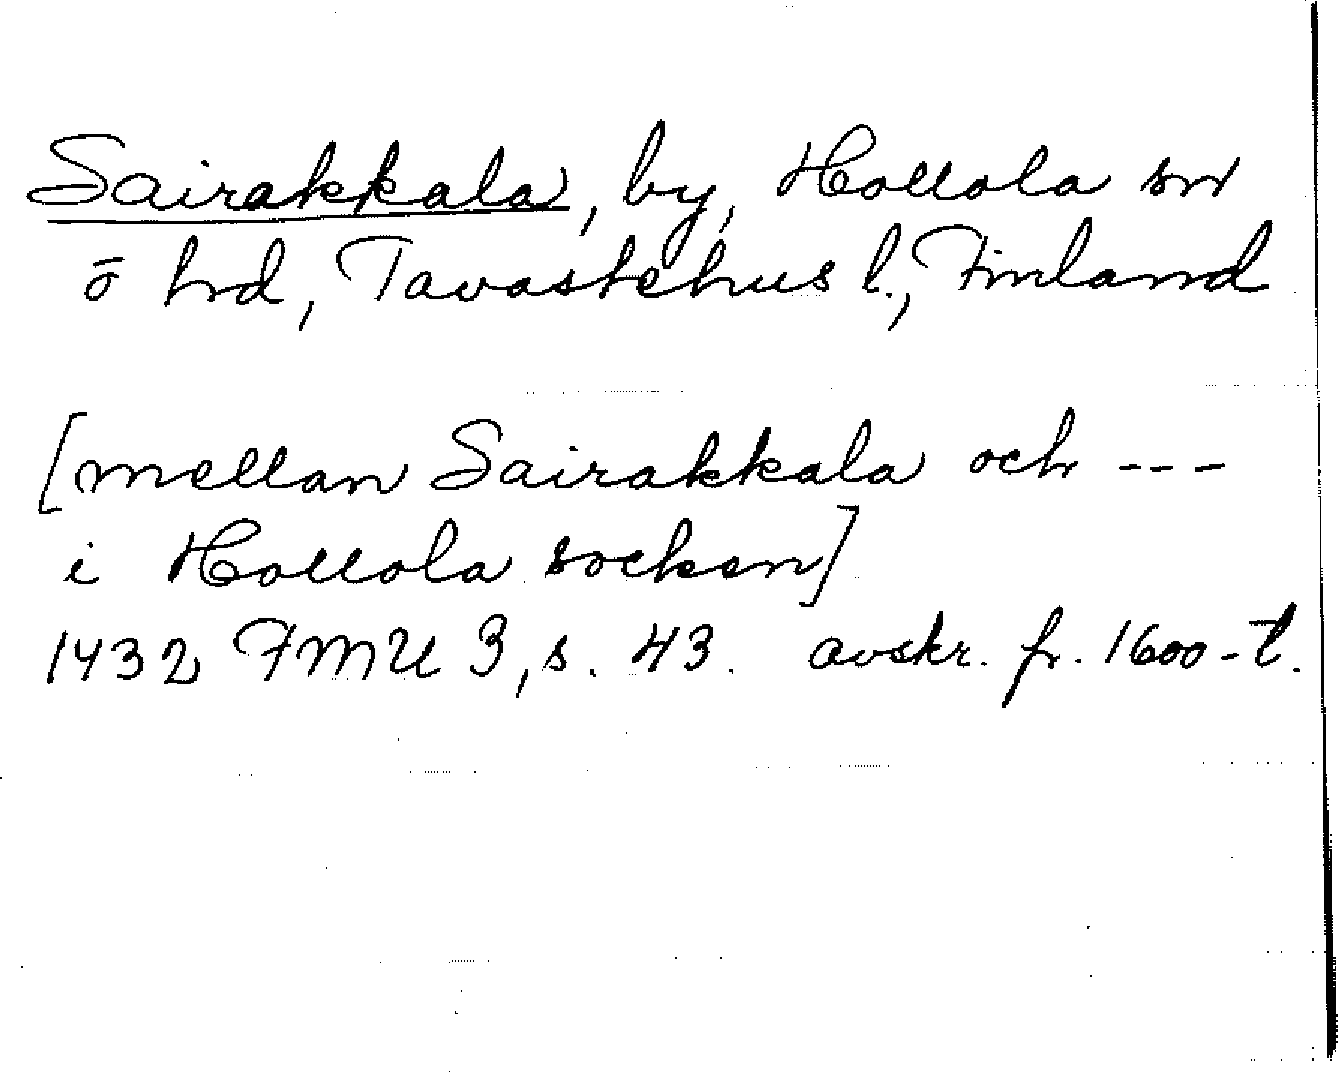 Sairakkala, by, Hollola sn
ō hrd, Tavastehus l., Finland
[mellan Sairakkala och ---
i Hollola socken]
1432 FMU 3, s. 43. avskr. fr. 1600-t.